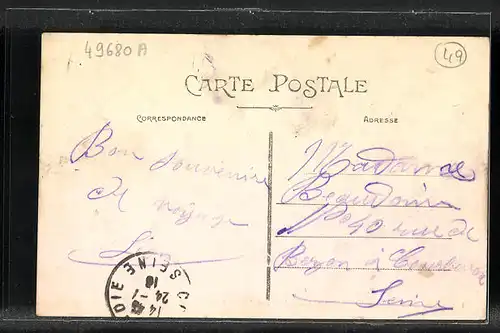 49680 A
49
CARTE POSTALE
CORRESPONDANCE
ADRESSE
Bon Souvenire
de
Madame
Beaudoin
No 40 rue de
Bezon à Courbevoie
Seine
SEINE
14
24-1